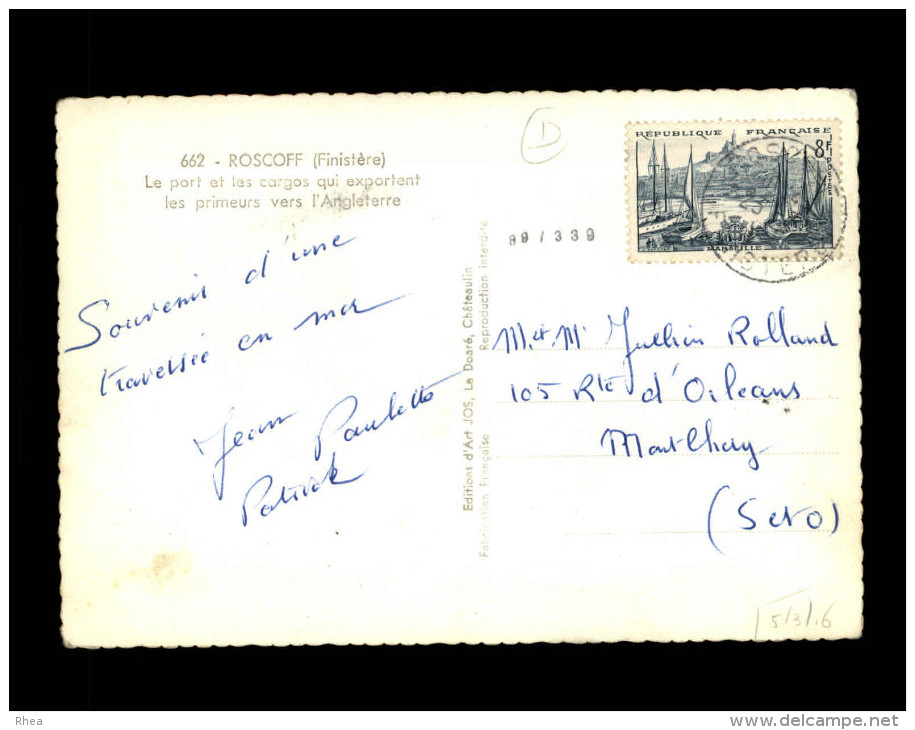 662 - ROSCOFF (Finistère)
Le port et les cargos qui exportent
les primeurs vers l'Angleterre
Souvenir d'une
traversée en mer
Jean Paulette
Patrick
Editions d'Art JOS, Le Doaré, Châteaulin
Fabrication Française Reproduction interdite
D
99/339
RÉPUBLIQUE FRANÇAISE
8F
POSTES
MARSEILLE
M. et Mr Jullien Rolland
105 Rte d'Orleans
Montlhéry
(S et O)
5/3/.6
Rhea
delcampe.net